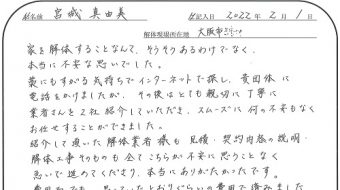 お名前 宮城 真由美 ご記入日 2022年 2月 1日
解体現場所在地 大阪市
家を解体することなんて、そうそうあるわけでなく、
本当に不安な思いでした。
藁にもすがる気持ちでインターネットで探し、貴団体に
電話をかけましたが、その後はとても親切に丁寧に
業者さんを2社紹介していただき、スムーズに何の不安もなく
お任せすることができました。
紹介して頂いた解体業者様も見積・契約内容の説明・
解体工事そのものも全てこちらが不安に思うことなく
急いで進めてくださり、本当にありがたかったです。
思っていたとおりぐらいの費用で済みました